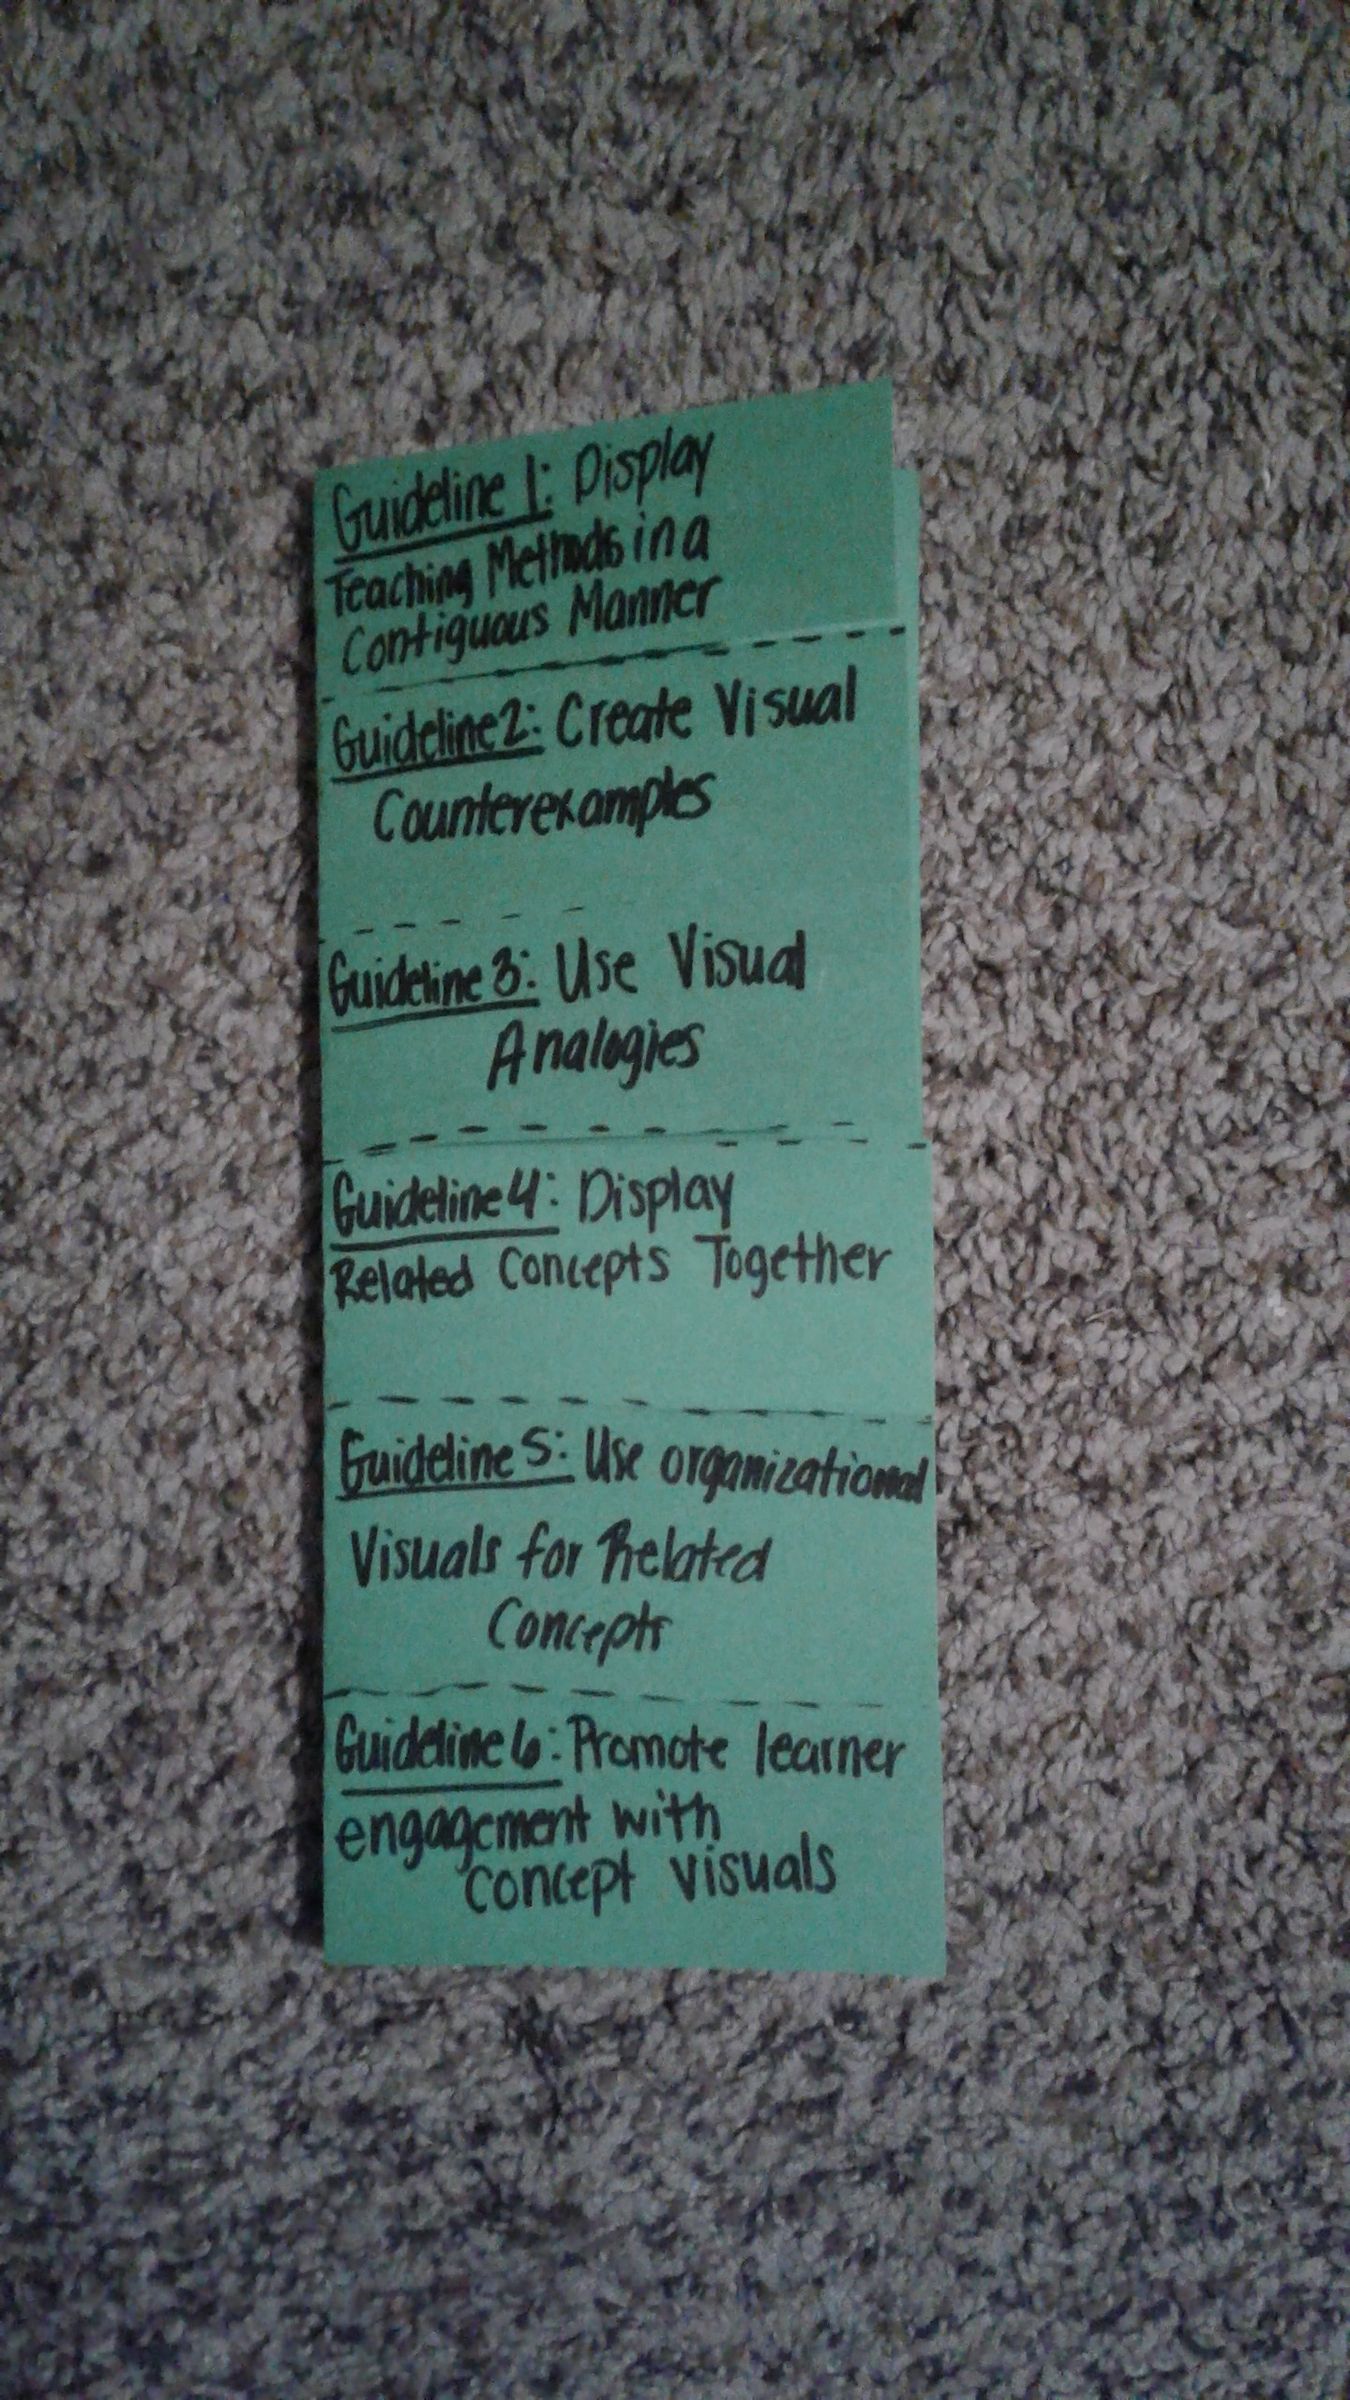 Guideline 1: Display
Teaching Methods in a
Contiguous Manner
Guideline 2: Create Visual
Counterexamples
Guideline 3: Use Visual
Analogies
Guideline 4: Display
Related Concepts Together
Guideline 5: Use organizational
Visuals for Related
Concepts
Guideline 6: Promote learner
engagement with
concept visuals